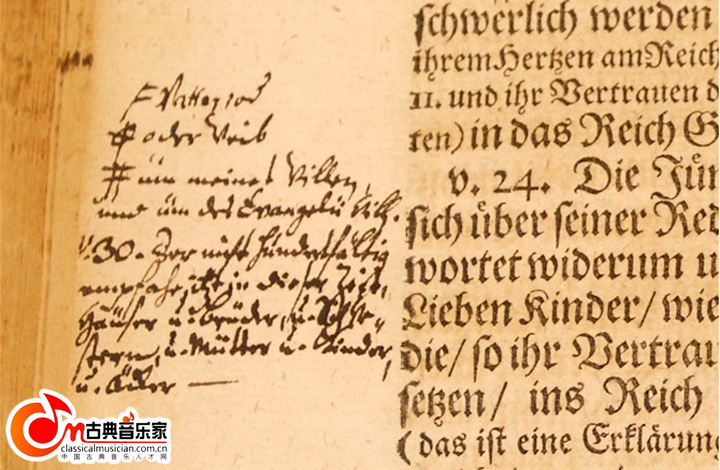 oder Weib
# um meinet Willen,
und um des Evangelii Will.
v. 30. Der nicht hundertfältig
empfahe, itzt in dieser Zeit,
Häuser u. Brüder, u. Schwe-
stern, u. Mütter u. Kinder,
u. Äcker —
schwerlich werden
ihrem Hertzen am Reich
11. und ihr Vertrauen d
ten) in das Reich G
v. 24. Die Jün
sich über seiner Red
wortet widerum u
Lieben Kinder/ wie
die/ so ihr Vertrau
setzen/ ins Reich
(das ist eine Erklärung
古典音乐家
classicalmusician.com.cn
中国古典音乐人才网